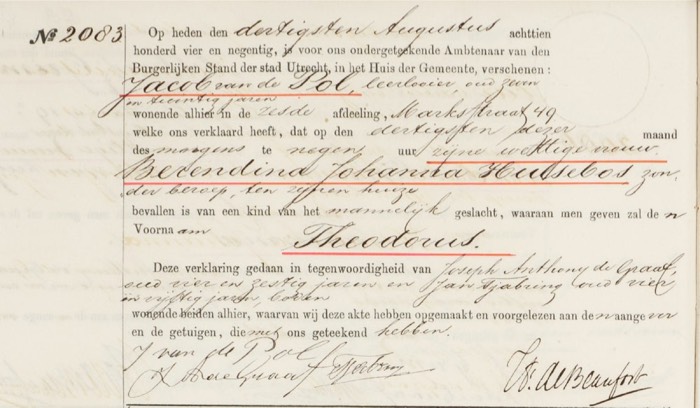 № 2083
Op heden den dertigsten Augustus achttien
honderd vier en negentig, is voor ons ondergeteekende Ambtenaar van den
Burgerlijken Stand der stad Utrecht, in het Huis der Gemeente, verschenen:
Jacob van de Pol, leerlooier, oud zeven
en twintig jaren
wonende alhier in de zesde afdeeling, Markstraat 49
welke ons verklaard heeft, dat op den dertigsten dezer maand
des morgens te negen uur zijne wettige vrouw
Berendina Johanna Hulsebos zon-
der beroep, ten zijnen huize
bevallen is van een kind van het mannelijk geslacht, waaraan men geven zal de n
Voorna am
Theodorus.
Deze verklaring gedaan in tegenwoordigheid van Joseph Anthony de Graaf,
oud vier en zestig jaren en Jan Tjabring oud vier
en vijftig jaren, boden
wonende beiden alhier, waarvan wij deze akte hebben opgemaakt en voorgelezen aan de n aange ver
en de getuigen, die met ons geteekend hebben.
J van de Pol
J A de Graaf
W. de Beaufort